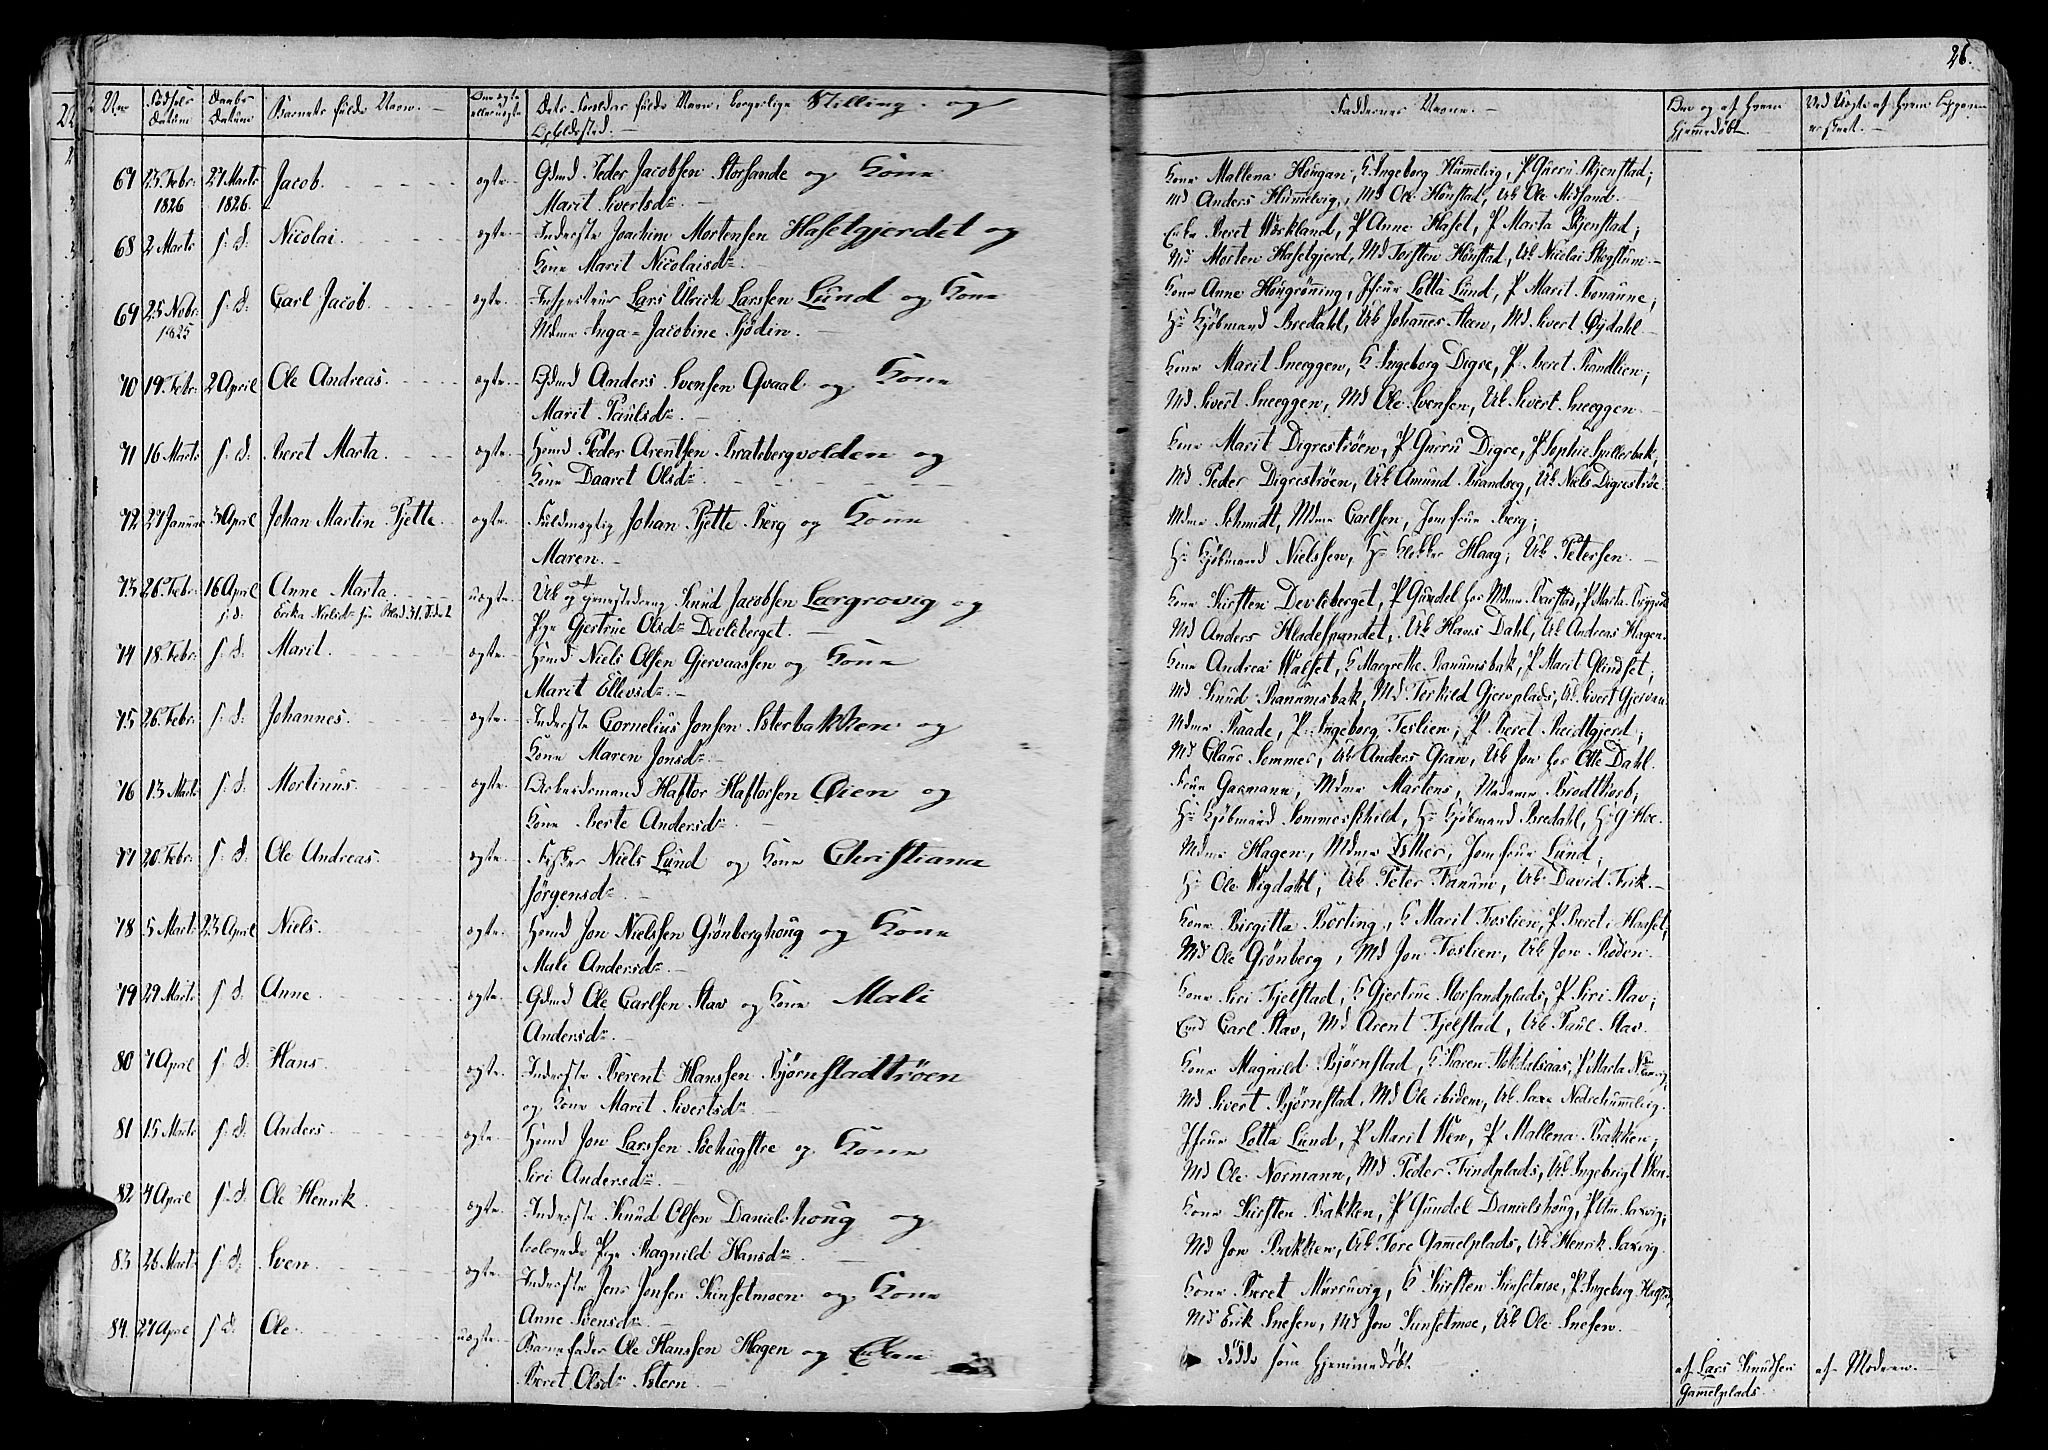 26.
No Fødsels Datum Daabs Datum Barnets fulde Navn. Om ægte eller uægte Dets Forældres fulde Navn, borgerlige Stilling og Opholdssted. Faddernes Navne. Om og af hvem hjemmedøbt. Ved Uægte af hvem
67 23 Febr. 1826 27 Marts 1826. Jacob. ægte. Gdmd Peder Jacobsen Storsande og Kone
Marit Sivertsdr.
Kone Mallena Hougan, K Ingeborg Hummelvig, P Guru Skjenstad;
Md Anders Hummelvig, Md Ole Hønstad, Uk Ole Midsand.
68 2 Marts s. d. Nicolai. ægte. Inderste Joachim Mortensen Haselgjerdet og
Kone Marit Nicolaisdr.
Enke Beret Workland, P Anne Hasel, P Marta Skjenstad;
Md Morten Haselgjerd, Md Torsten Hønstad, Uk Nicolai
69 25 Nobr. 1825 s. d. Carl Jacob. ægte. Lars Ulrich Larssen Lund og Kone
Mdme Inga Jacobine Sjødin.
Kone Anne Hougrønning, Jfrue Lotta Lund, P Marit
Hr Kjøbmand Bredahl, Uk Johannes Steen, Md Sivert Øydahl
70 19. Febr. 2 April Ole Andreas. ægte. Gdmd Anders Svensen Qvaal og Kone
Marit Paulsdr.
Kone Marit Sneeggen, K Ingeborg Digre, P Beret Randlien;
Md Sivert Sneeggen, Md Ole Svensen, Uk Sivert Sneeggen
71 16 Marts s. d. Beret Marta. ægte. Hsmd Peder Arentsen Bratsbergvolden og
Kone Daaret Olsdr.
Kone Marit Digrestrøen, P Gurru Digre, P Sophie
Md Peder Digrestrøen, Uk Amund Brandveg, Uk Niels Digrestrøe.
72 27 Januar 3 April Johan Martin Pjette. ægte. Fuldmægtig Johan Pjette Berg og Kone
Maren.
Mdme Schmidt, Mdme Carlsen, Jomfrue Berg;
Hr Kjøbmand Nielssen, Hr Klokker Haag, Uk Petersen.
73 26. Febr. 16 April Anne Marta. uægte. Uk Knud Jacobsen Leergrovig og
Pige Gjertrue Olsdr Devleberget.
Kone Kirsten Devleberget, P Gundel hos Mdme Barstad, P Marta
Md Anders Hladespandet, Uk Hans Dahl, Uk Andreas Hagen.
74 18. Febr. s. d. Marit. ægte. Hsmd Niels Olsen Gjervaassen og Kone
Marit Ellevsdr.
Kone Andrea Walset, K Margrethe Ranumsbak, P Marit Glindset;
Md Knud Ranumsbak, Md Terkild Gjervplads, Uk Sivert
75 26. Febr. s. d. Johannes. ægte. Inderste Cornelius Jonsen Osterbakken og
Kone Maren Jonsdr.
Mdme Raade, P. Ingeborg Foslien, P Beret Reidtgjerd;
Md Claus Semmer, Uk Anders Gran, Uk Jon hos Otte Dahl.
76 13 Marts s. d. Mortinus. ægte. Arbeidsmand Haftor Haftorsen Øien og
Kone Berte Andersdr.
Frue Garmann, Mdme Martens, Madame Brodtkorb;
Hr Kjøbmand Sommerschild, Hr Kjøbmand Bredahl, Hr G Hoe.
77 20. Febr. s. d. Ole Andreas. ægte. Fisker Niels Lund og Kone Christiana
Jørgensdr.
Mdme Hagen, Mdme Esther, Jomfrue Lund;
Hr Ole Wigdahl, Uk Peter Tranum, Uk David Frik.
78 5 Marts 23 April Niels. ægte. Hsmd Jon Nielssen Grønberghoug og Kone
Mali Andersdr.
Kone Birgitta Børting, K Marit Foslien, P Beret i Hassel,
Md Ole Grønberg, Md Jon Foslien, Uk Jon Roden.
79 29 Marts s. d. Anne. ægte. Gdmd Ole Carlsen Stav og Kone Mali
Andersdr.
Kone Siri Fjelstad, K Gjertrue Storsandplads, P Siri Stav;
Carl Stav, Md Arent Fjelstad, Uk Paul Stav.
80 7 April s. d. Hans. ægte. Inderste Berent Hanssen Bjørnstadtrøen
og Kone Marit Sivertsdr.
Kone Magnild Bjørnstad, K Karen Stokdalsaas, P Marta
Md Sivert Bjørnstad, Md Ole ibidem, Uk Saxe Nedrehummelvig.
81 15 Marts s. d. Anders. ægte. Hsmd Jon Larssen og Kone
Siri Andersdr.
Jfrue Lotta Lund, P Marit Wen, P Mallena Bakken;
Md Ole Normann, Md Peder Findplads, Uk Ingebrigt Wen.
82 4 April s. d. Ole Henrik. ægte. Inderste Knud Olsen Danielshoug og
trolovede Pige Ragnild Hansdr
Kone Kirsten Bakken, P Gundel Danielshoug, P Ane Saxvig;
Md Jon Bakken, Uk Tore Gammelplads, Uk Henrik Saxvig.
83 26 Marts s. d. Sven. ægte. Inderste Jens Jonsen Kunselmoen og Kone
Anne Svensdr.
Kone Beret Murruvig, K Kirsten Kunselmoe, P Ingeborg
Md Erik Snesen, Md Jon Kunselmoe, Uk Ole Snesen.
84. 27 April s. d. Ole. uægte. Barnefader Ole Hanssen Hagen og Enken
Beret Olsdr
Døde som hjemmedøbt.
af Lars Knudsen Gammelplads.
af Moderen.